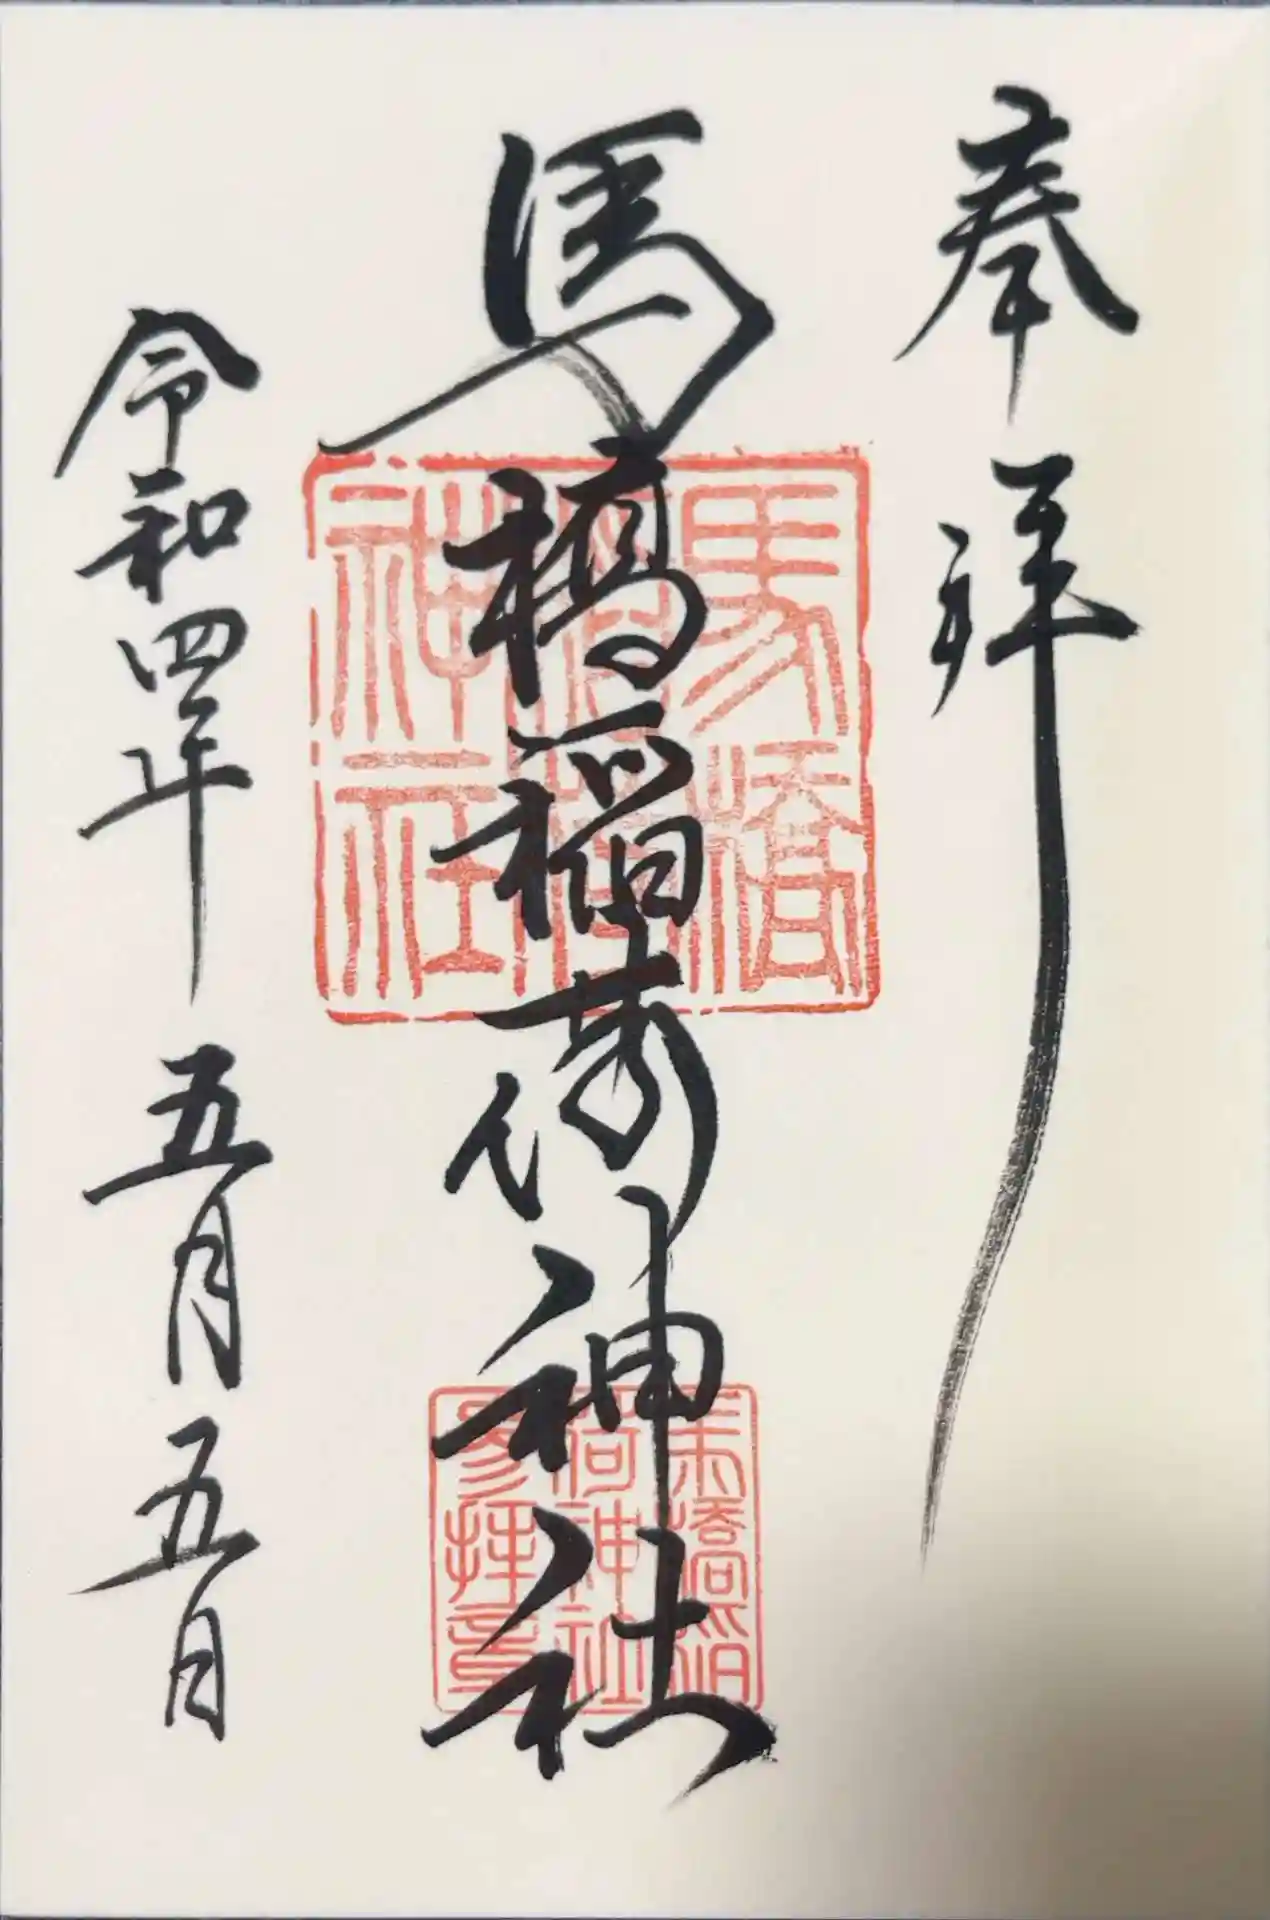 奉拝
馬橋稲荷神社
令和四年 五月五日
馬橋稲荷神社
馬橋稲荷神社参拝印